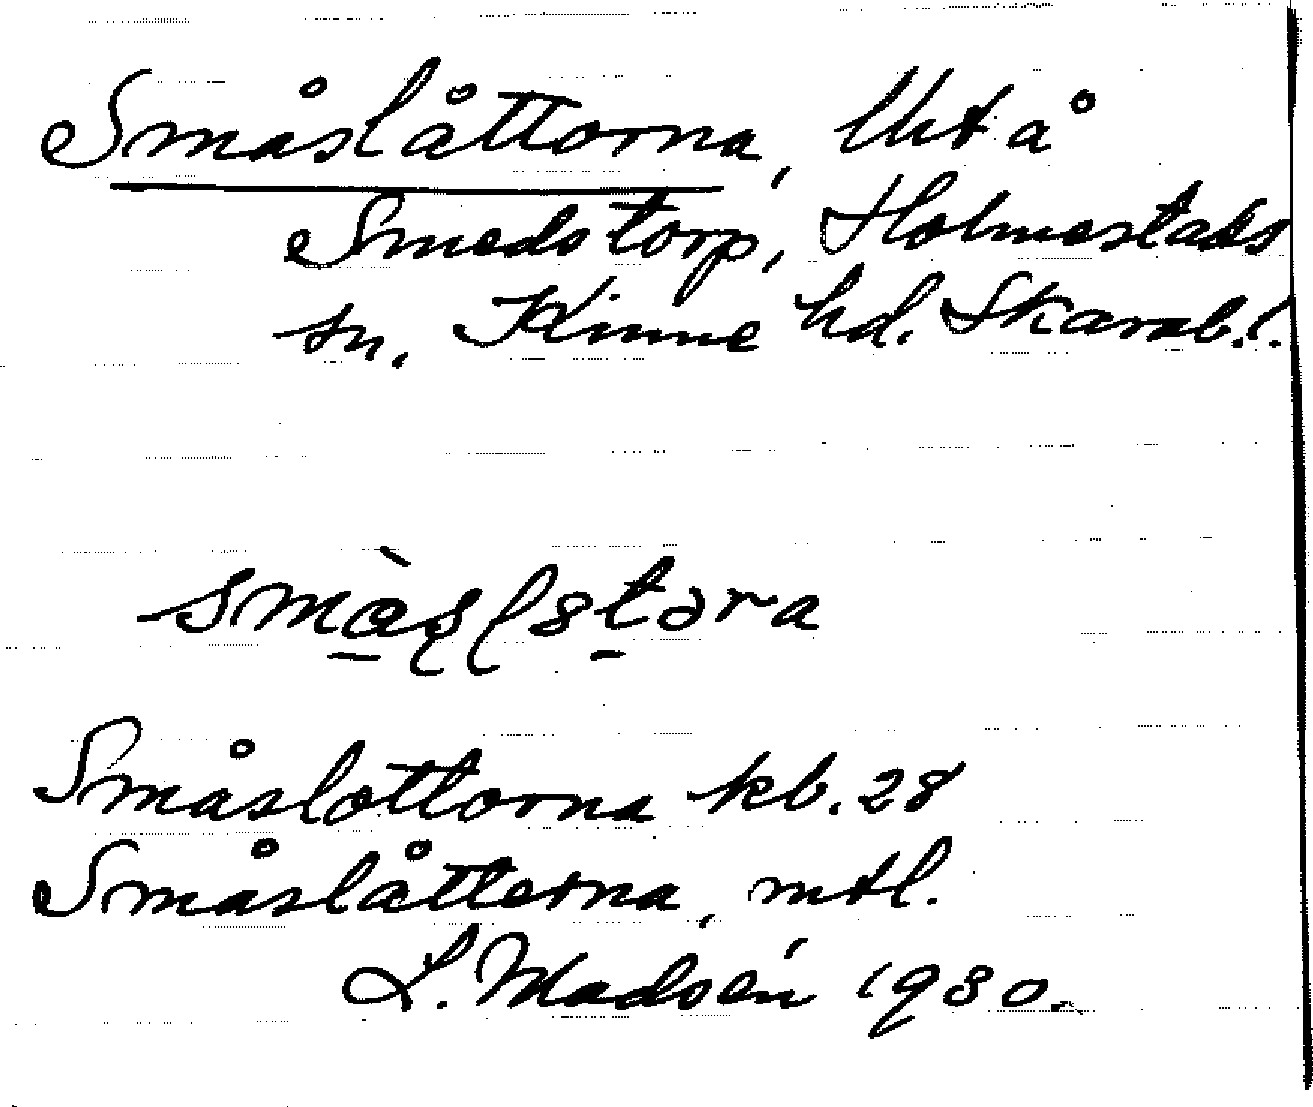 Småslåttorna, Uht å
Smedstorp, Holmestads
sn. Kinne hd. Skarab. l.
Småslottorna kb. 28
Småslåtterna, mtl.
L. Madsén 1930.